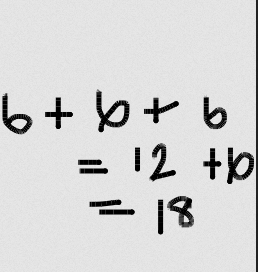 6 + 6 + 6
= 12 + 6
= 18